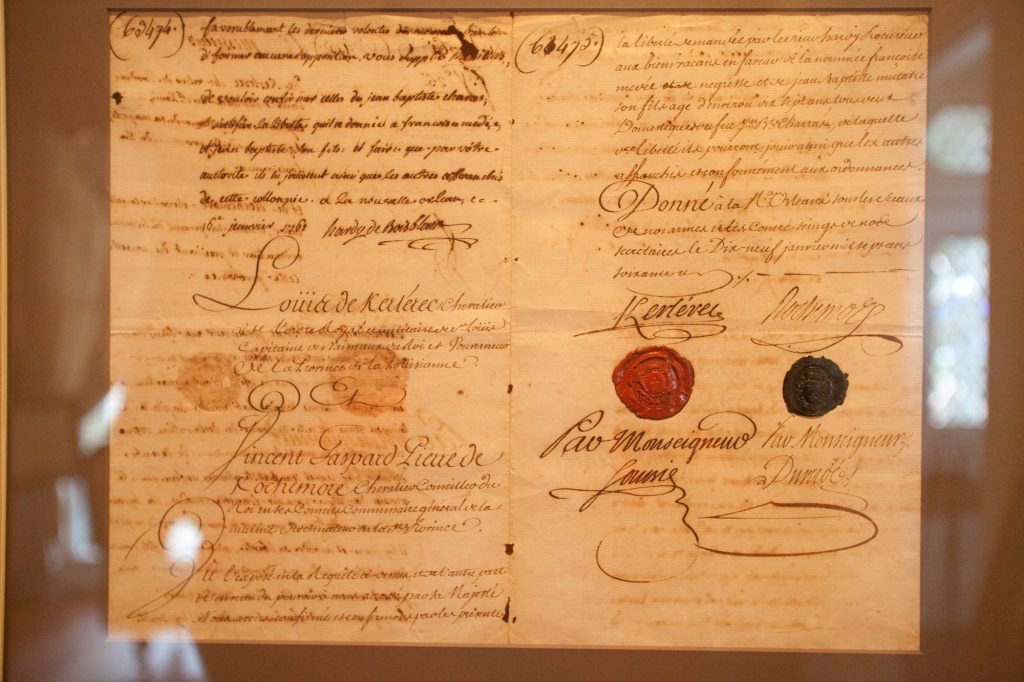 63474.
favorablement les derniers volontés du nommé
d'former aucune opposition, vous supplie
de vouloir confirmer celles du jean baptiste charas,
la liberté qu'il a donnée a francoise medée,
et jean baptiste son fils: et faire que par votre
autorité ils jouissent ainsi que les autres affranchis
de cette collonnie. a La nouvelle orleans, ce
16.e janvier 1761 hardy de Boisblanc
Loüis de Kerlérec chevalier
de Loüis
Capitaine des Vaisseaux du Roi et Gouverneur
de la Province de la Louisianne.
Et
Vincent Gaspard Pierre de
Rochemore Chevalier Conseiller du
Roi en ses Conseils Commissaire général de la
marine Ordonnateur en lad. Province.
Vû l'exposé en la Requête et de l'autre part
Et en vertu du pouvoir a nous accordé par sa Majesté
Nous avons confirmé et confirmons par les présentes
63475.
la liberté demandée par le sieur hardy Procureur
aux biens vacans en faveur de la nommée françoise
medée negresse et de jean Baptiste mulatre
son fils agé d'environ dix sept ans tous deux
Domestiques du feu Charras, de laquelle
liberté ils pouront jouir ainsi que les autres
affranchis et conformément aux ordonnances.
Donné à la N.lle Orleans sous le sceau
de nos armes et les Contre seings de nos
Secretaires le Dix neuf janvier mil sept cens
soixante un
Kerlérec Rochemore
Par Monseigneur Par Monseigneur,